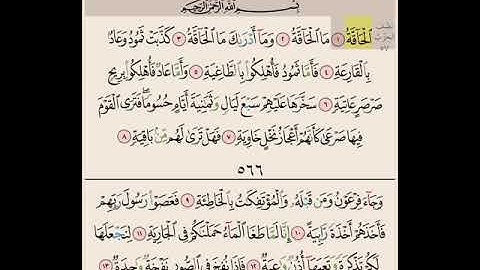 بِسْمِ اللَّهِ الرَّحْمَٰنِ الرَّحِيمِ
الْحَاقَّةُ ١ مَا الْحَاقَّةُ ٢ وَمَا أَدْرَىٰكَ مَا الْحَاقَّةُ ٣ كَذَّبَتْ ثَمُودُ وَعَادٌ
بِالْقَارِعَةِ ٤ فَأَمَّا ثَمُودُ فَأُهْلِكُوا بِالطَّاغِيَةِ ٥ وَأَمَّا عَادٌ فَأُهْلِكُوا بِرِيحٍ
صَرْصَرٍ عَاتِيَةٍ ٦ سَخَّرَهَا عَلَيْهِمْ سَبْعَ لَيَالٍ وَثَمَٰنِيَةَ أَيَّامٍ حُسُومًا فَتَرَى الْقَوْمَ
فِيهَا صَرْعَىٰ كَأَنَّهُمْ أَعْجَازُ نَخْلٍ خَاوِيَةٍ ٧ فَهَلْ تَرَىٰ لَهُم مِّنۢ بَاقِيَةٍ ٨
٥٦٦
وَجَاءَ فِرْعَوْنُ وَمَن قَبْلَهُۥ وَالْمُؤْتَفِكَٰتُ بِالْخَاطِئَةِ ٩ فَعَصَوْا رَسُولَ رَبِّهِمْ
فَأَخَذَهُمْ أَخْذَةً رَّابِيَةً ١٠ إِنَّا لَمَّا طَغَا الْمَاءُ حَمَلْنَٰكُمْ فِي الْجَارِيَةِ ١١ لِنَجْعَلَهَا
لَكُمْ تَذْكِرَةً وَتَعِيَهَا أُذُنٌ وَٰعِيَةٌ ١٢ فَإِذَا نُفِخَ فِي الصُّورِ نَفْخَةٌ وَٰحِدَةٌ ١٣